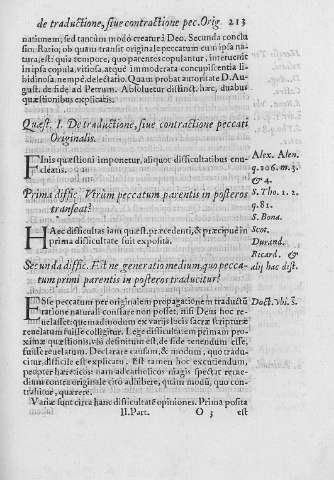 de traductione, siue contractione pec. Orig. 213
nationem, sed tantùm modo creatur à Deo. Secunda conclu
sio: Ratio, ob quam transit originale peccatum cum ipsa na-
tura, est: quia tempore, quo parentes copulantur, interuenit
in ipsa copula, vitiosa, atque immoderata concupiscentia li-
bidinosa, nempe, delectatio. Quam probat autoritate D. Au-
gust. de fide ad Petrum. Absoluetur distinct. hæc, duabus
quæstionibus explicatis.
Quæst. I. De traductione, siue contractione peccati
Originalis.
FInis quæstioni imponetur, aliquot difficultatibus enu-
cleatis.
Alex. Alen.
q. 106. m. 3.
& 4.
Prima diffic. Vtrum peccatum parentis in posteros
transeat?
S. Tho. 1. 2.
q. 81.
S. Bona.
HÆc difficultas iam quæst. præcedenti, & præcipuè in
prima difficultate fuit exposita.
Scot.
Durand.
Ricard. &
alij hac dist.
Secunda diffic. Est ne generatio medium, quo pecca-
tum primi parentis in posteros traducitur?
ESse peccatum per originalem propagationem traductū
ratione naturali constare non posset, nisi Deus hoc re-
uelasset: quemadmodum ex varijs locis sacræ scripturæ
reuelatum fuisse colligitur. Lege difficultatem primam pro-
ximæ quæstionis, vbi definitum est, de fide tenendum esse,
fuisse reuelatum. Declarare causam, & modum, quo tradu-
citur, difficile est explicatu. Est tamen hoc excutiendum,
Doct. vbi. s.
propter hæreticos: nam ad catholicos magis spectat reme-
dium contra originale citò adhibere, quàm modū, quo con-
trahitur, quærere.
Variæ sunt circa hanc difficultatē opiniones. Prima posita
II. Part. O 3 est